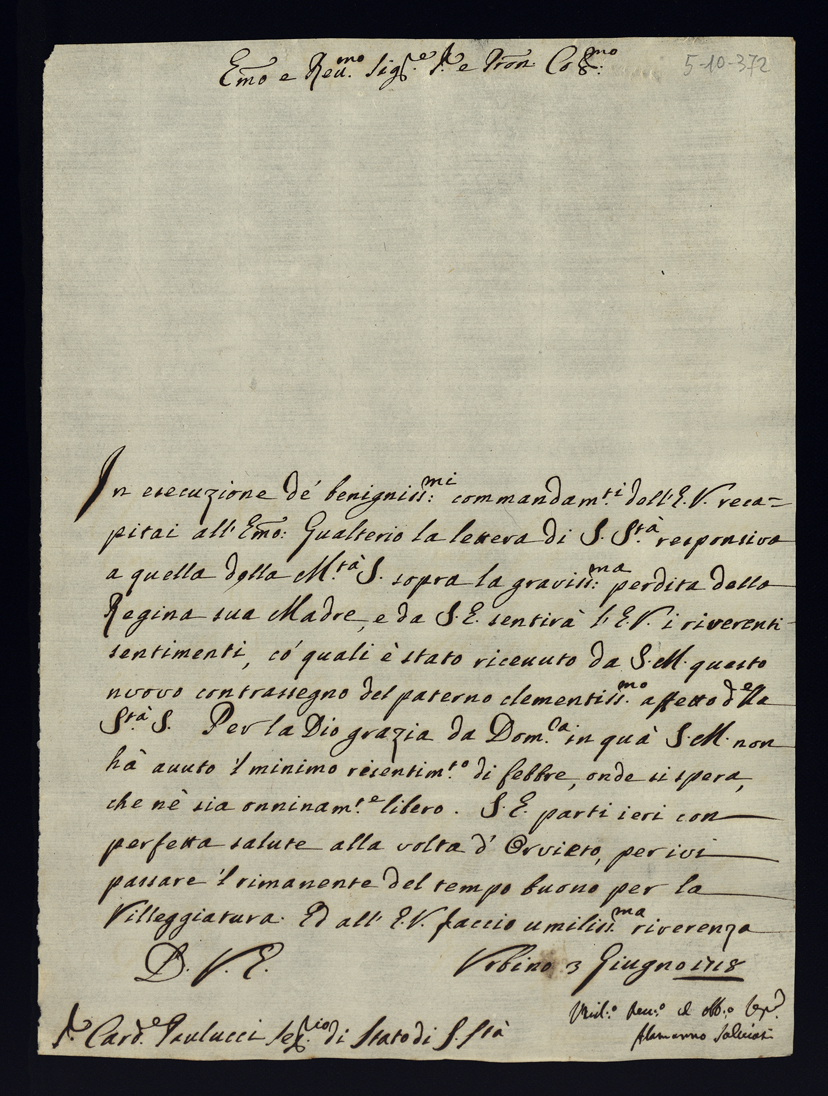 Emo e Reu.mo Sig.re P.re e Pron Co.lmo
5-10-372
In esecuzione de' benigniss:mi commandam.ti dell'E.V. reca=
pitai all'Emo: Gualterio la lettera di S. S.tà responsiva
a quella della M.tà S. sopra la graviss:ma perdita della
Regina sua Madre, e da S.E. sentirà l'E.V. i riverenti
sentimenti, co' quali è stato riceuuto da S.M. questo
nuovo contrassegno del paterno clementiss.mo affetto della
S.tà S. Per la Dio grazia da Dom.ca in quà S.M. non
hà auuto 'l minimo risentim.to di febbre, onde si spera,
che nè sia onninam.te libero. S.E. parti ieri con
perfetta salute alla volta d'Orvieto, per ivi
passare 'l rimanente del tempo buono per la
Villeggiatura. Ed all'E.V. faccio umiliss:ma riverenza
D. V. E. Urbino 3 Giugno 1718
Card.e Paulucci Seg.rio di Stato di S. Stà
Umil.o Deu.o et obb.o Ser.
Alamanno Salviati